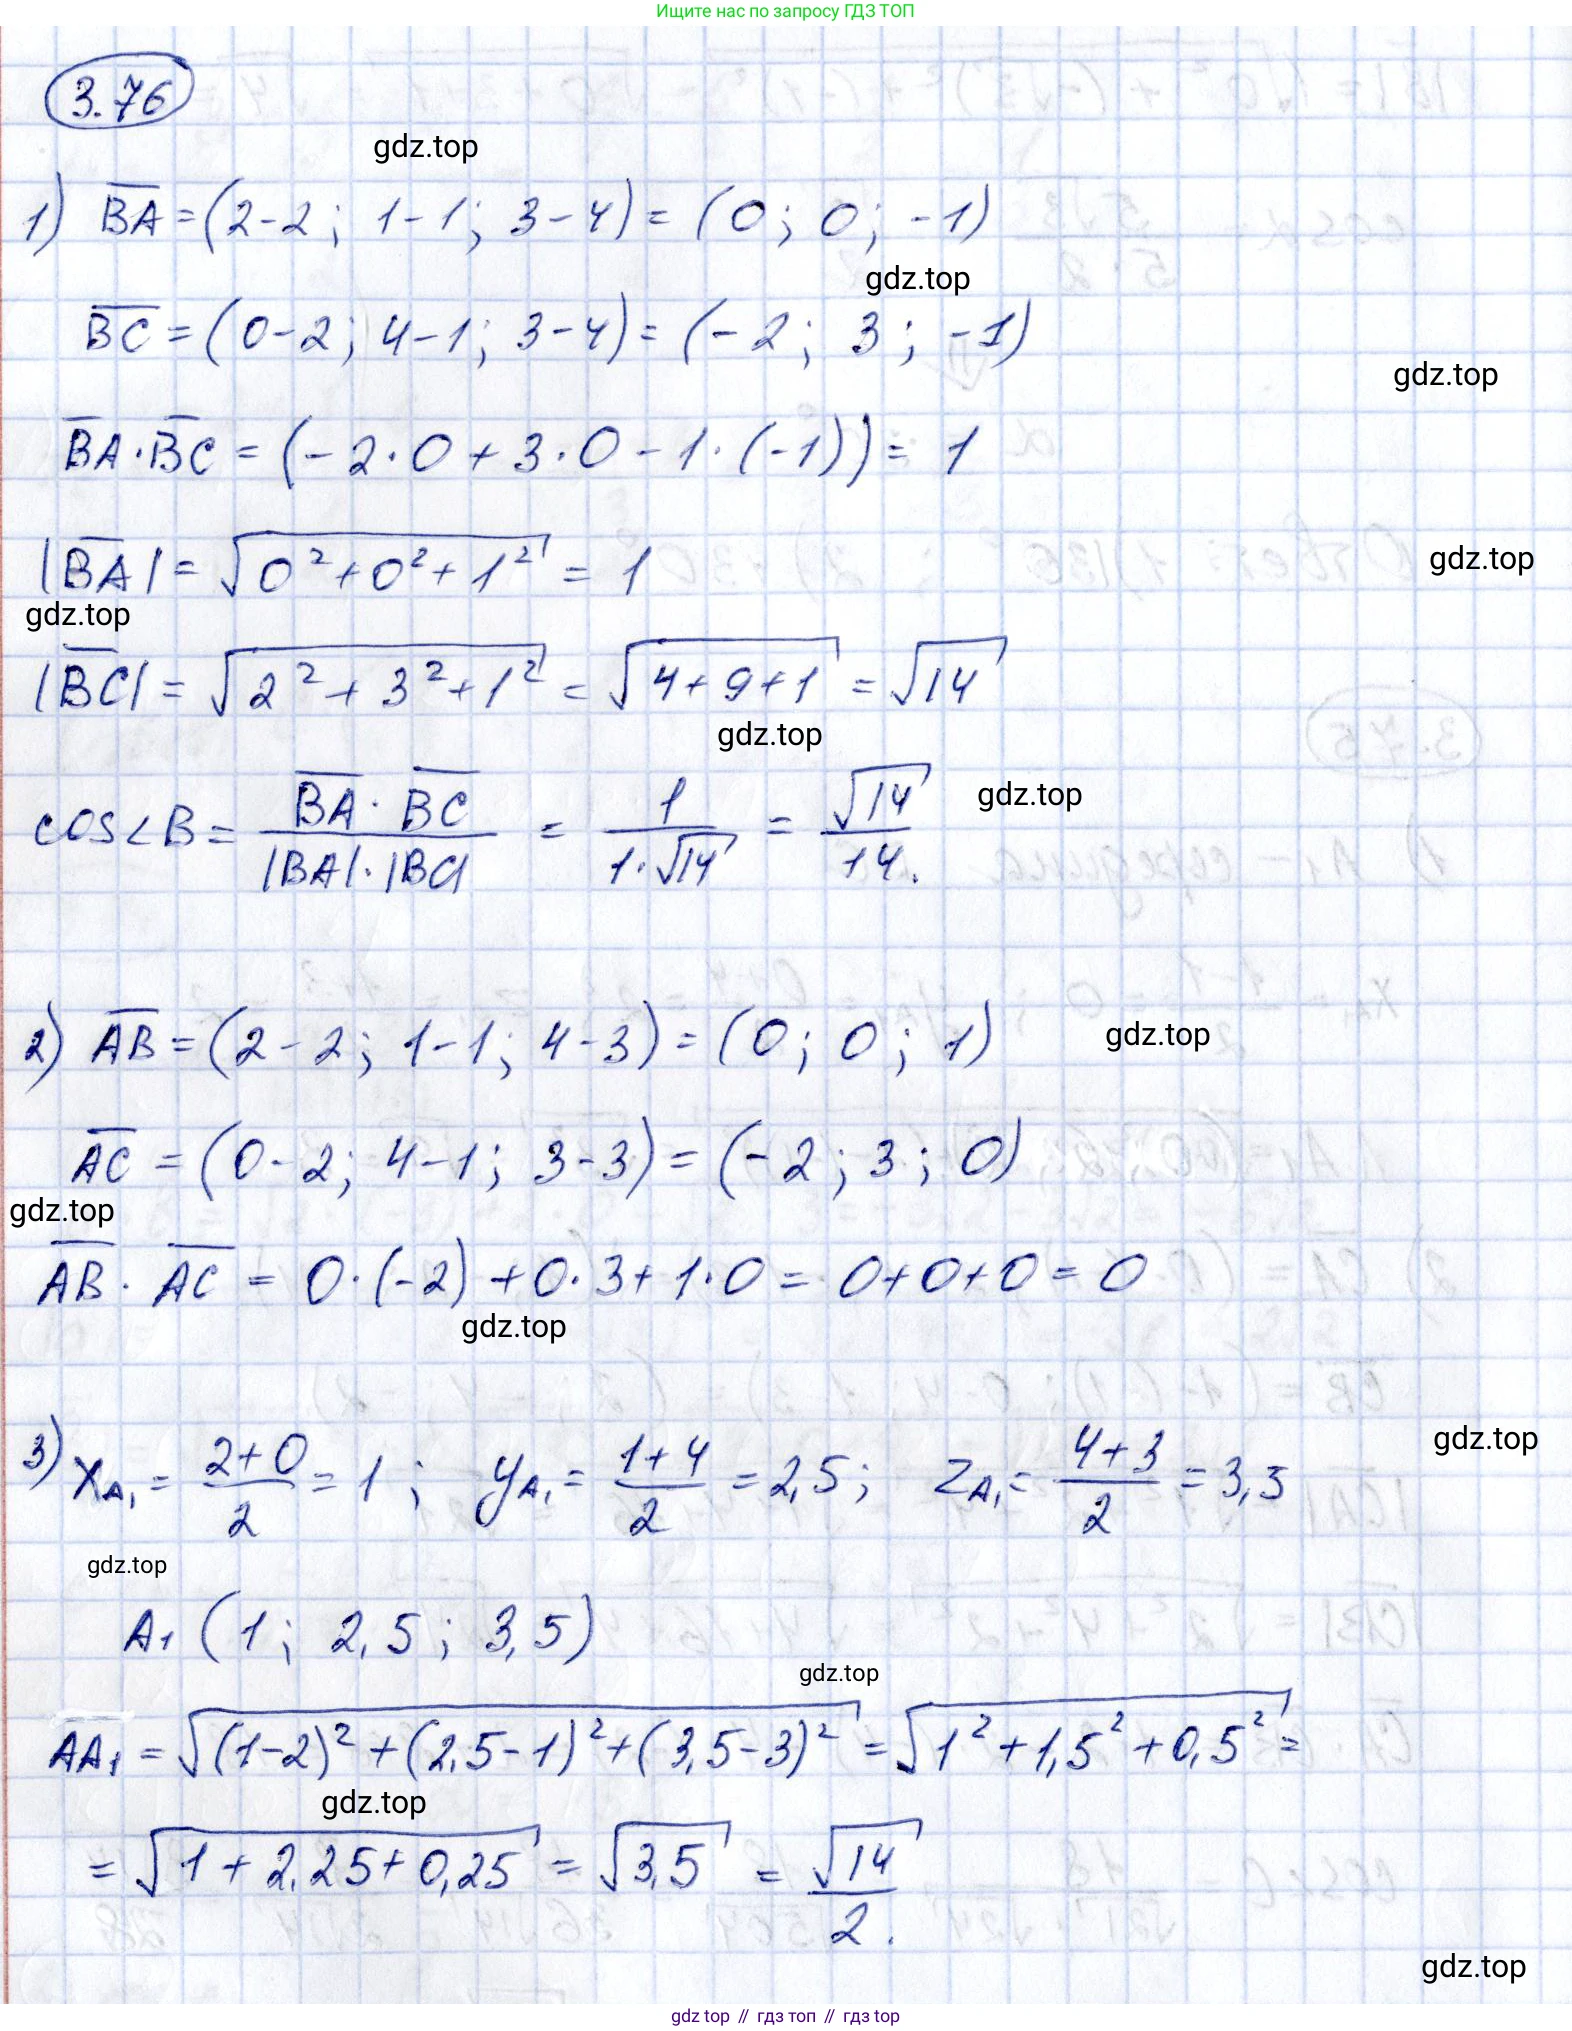 Ищите нас по запросу ГДЗ ТОП
3.76
gdz.top
1) BA = (2-2; 1-1; 3-4) = (0; 0; -1)
gdz.top
BC = (0-2; 4-1; 3-4) = (-2; 3; -1)
gdz.top
BA·BC = (-2·0+3·0-1·(-1)) = 1
|BA| = √(0²+0²+1²) = 1
gdz.top
gdz.top
|BC| = √(2²+3²+1²) = √(4+9+1) = √14
gdz.top
cos∠B = (BA·BC)/(|BA|·|BC|) = 1/(1·√14) = √14/14.
gdz.top
2) AB = (2-2; 1-1; 4-3) = (0; 0; 1)
gdz.top
AC = (0-2; 4-1; 3-3) = (-2; 3; 0)
gdz.top
AB · AC = 0·(-2)+0·3+1·0 = 0+0+0 = 0
gdz.top
3) x_A₁ = (2+0)/2 = 1; y_A₁ = (1+4)/2 = 2,5; z_A₁ = (4+3)/2 = 3,5
gdz.top
gdz.top
A₁ (1; 2,5; 3,5)
gdz.top
AA₁ = √((1-2)²+(2,5-1)²+(3,5-3)²) = √(1²+1,5²+0,5²) =
gdz.top
= √(1+2,25+0,25) = √3,5 = √14/2.
gdz.top
gdz top // гдз топ // gdz top